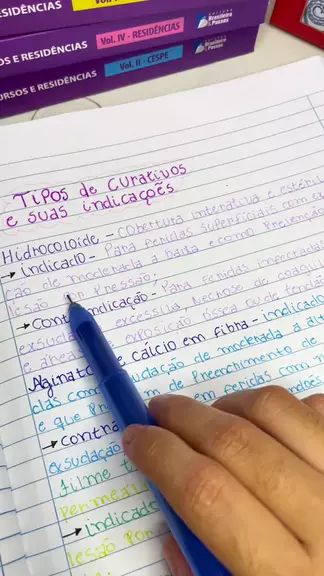 Vol. IV - RESIDÊNCIAS
OS E RESIDÊNCIAS
Vol. II - CESPE
URSOS E RESIDÊNCIAS
Brasileira
& Passos
TIPOS de CURATIVOS
e suas indicações
Hidrocoloide - Cobertura interativa e estéril
→ indicado - Para feridas superficiais com ex
ção de moderada a baixa e como prevenção
lesão Pressão.
→ indicação - Para feridas infectadas
exsud excessiva, Necrose de coagul
e área exposição óssea ou de tendã
Alginato e cálcio em fibra - indicado
das com exsudação de moderada a alt
e que de Preenchimento de
em feridas com
→ Contra
exsudação
filme t
Perime
→ indicado
lesão Por